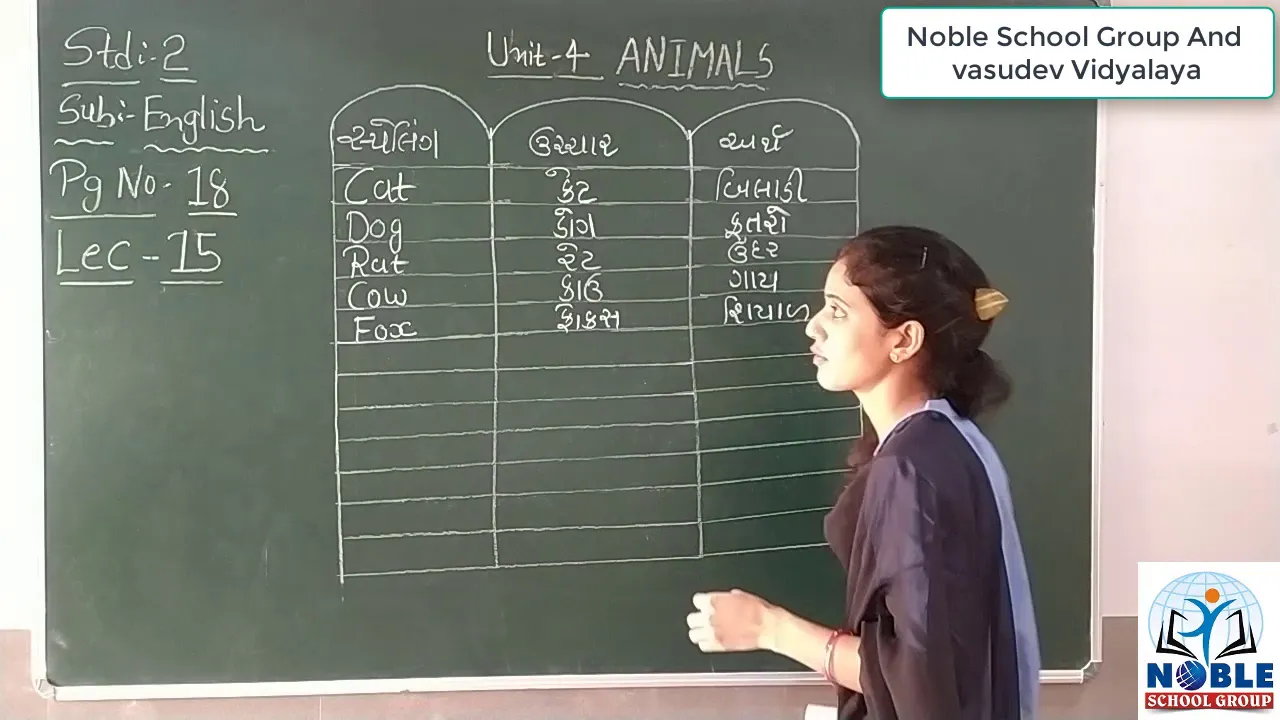 Noble School Group And
vasudev Vidyalaya
Std:-2
Sub:- English
Pg No- 18
Lec-15
Unit-4 ANIMALS
સ્પેલિંગ ઉચ્ચાર અર્થ
Cat કેટ બિલાડી
Dog ડોગ કૂતરો
Rat રેટ ઉંદર
Cow કાઉ ગાય
Fox ફોકસ શિયાળ
NOBLE
SCHOOL GROUP